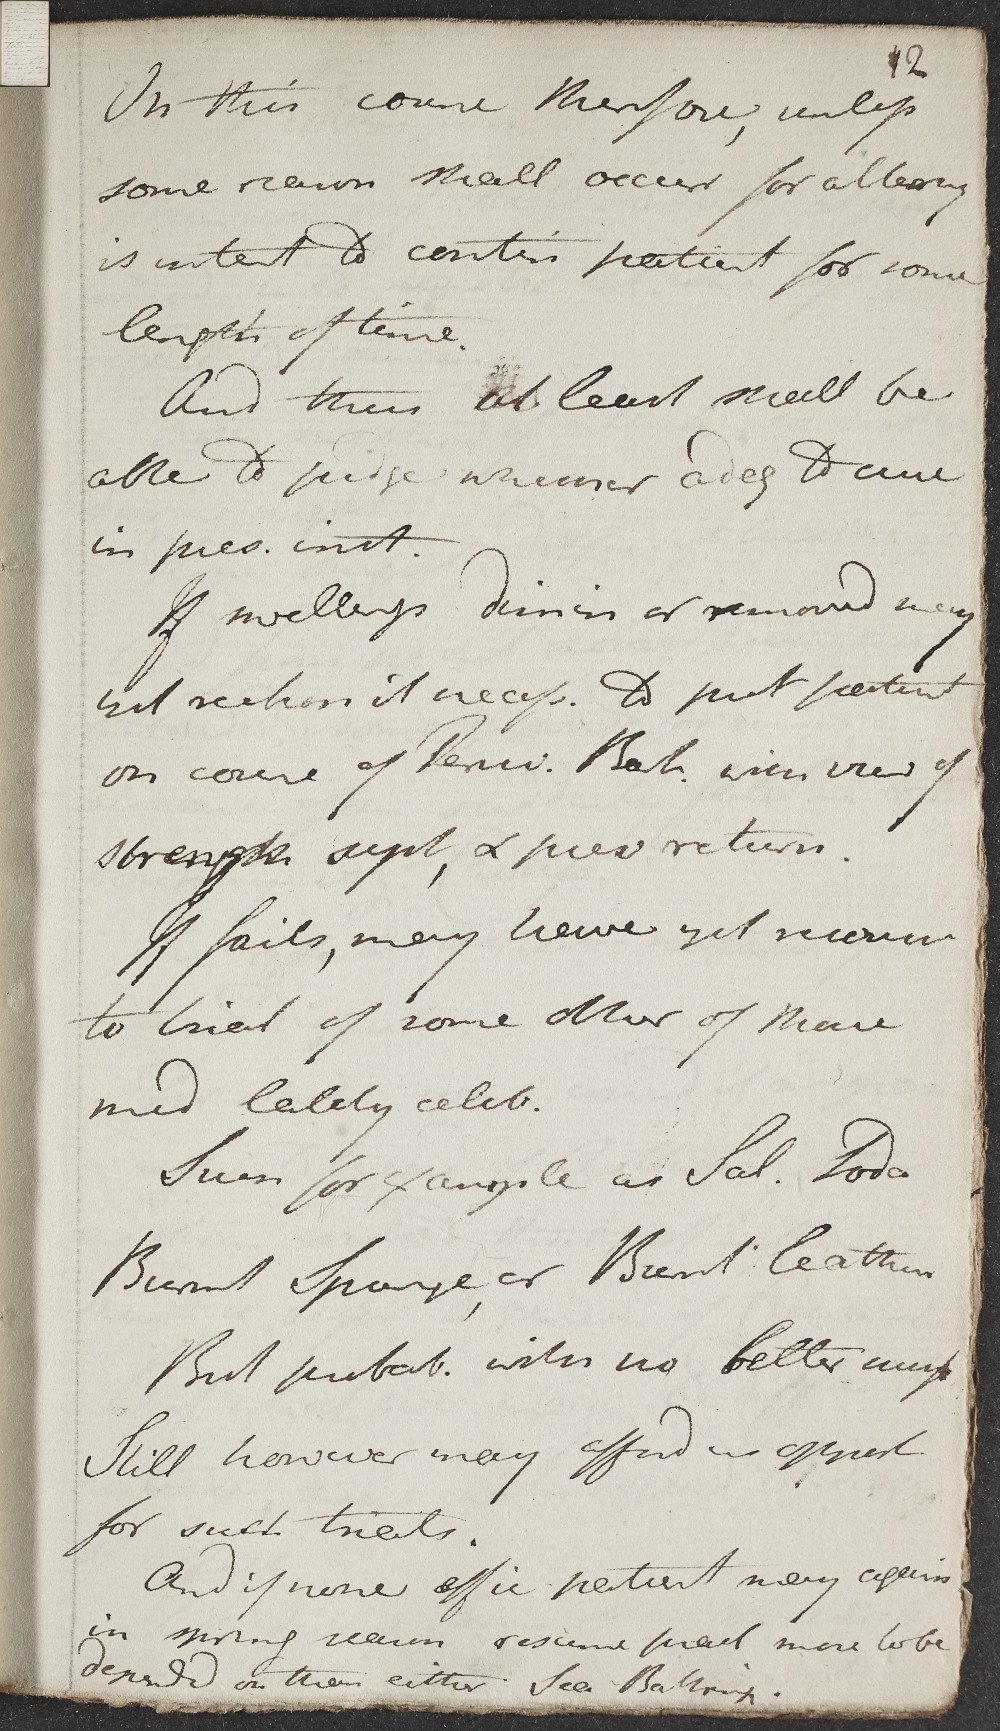 12
On this course therefore, unless
some reason shall occur for altering
is intent to contin patient for some
length of time.
And thus at least shall be
able to judge whether adeq to cure
in pres. inst.
If swellings dimin or removed may
yet reckon it necess. to put patient
on course of Peruv. Bark. with view of
strength syst, & prev return.
If fails, may have yet recourse
to trial of some other of those
med lately celeb.
Such for example as Sal. Soda
Burnt Sponge, or Burnt leather
But probab. with no better
Still however may afford us opport
for such trials.
And if none effic patient may again
in spring season resume pract more to be
depended on than either Sea Bathing.